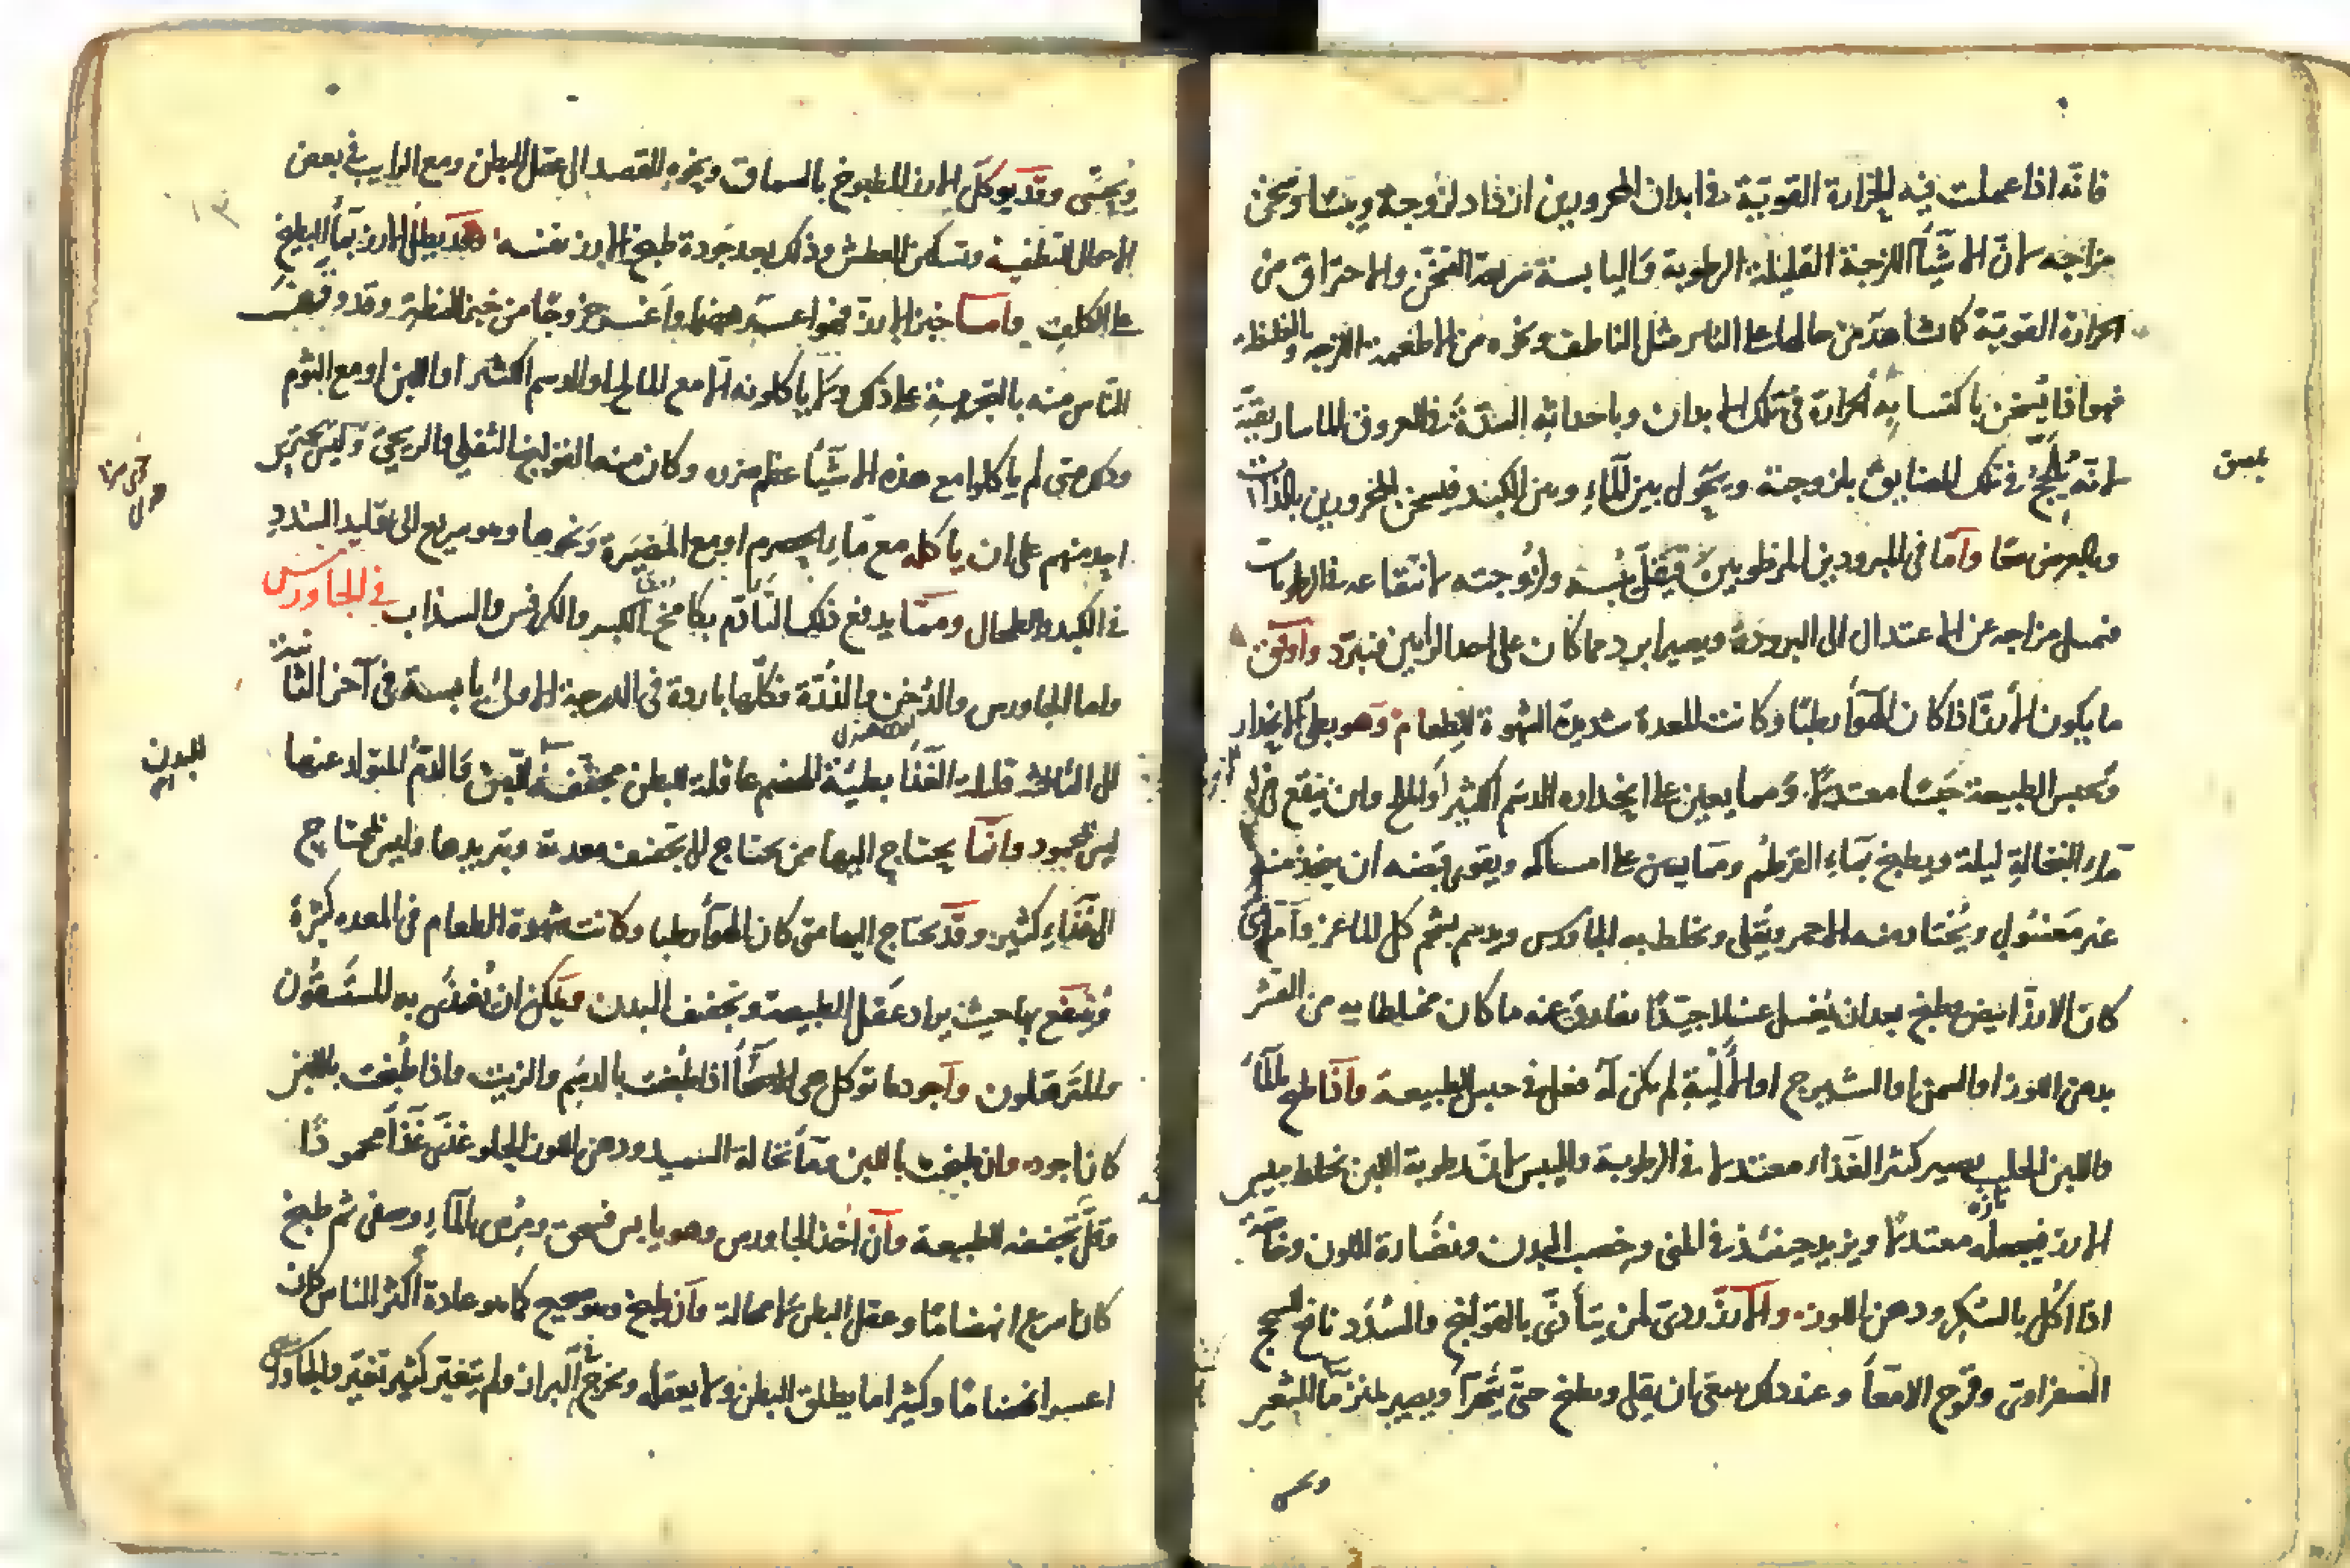 فانه اذا عملت فيه الحرارة القوية في ابدان المحرورين ازداد لزوجة ويبسا وسخن
مزاجه لان الاشيآ اللزجة القليلة الرطوبة واليابسة سريعة التسخن والاحتراق من
الحرارة القوية كما تشاهد من حالها على النار مثل الناطف ونحوه من الاطعمة اللزجه والغليظة
فهو اذا يسخن باكتسابه الحرارة في تلك الابدان وباحداثه السدة في العروق الماساريقية
لانه يلحج في تلك المضايق بلزوجته ويحول بين المآء وبين الكبد فيسخن المحرورين بالذات
وبالعرض معا وآما في المبرودين المرطوبين فيقل يبسه ولزوجته لانتقاعه في الرطوبات
فيميل مزاجه عن الاعتدال الى البرودة ويصير ابرد مما كان على احد الرايين فيبرد واوفق
ما يكون الارز اذا كان الهوآ رطبا وكانت المعدة شديدة الشهوة للطعام وهو بطئ الانحدار
وتحبس الطبيعة حبسا معتدلا ومما يعين على انحداره الدسم الكثير او الملح وان ينقع في
مآء النخالة ليلة ويطبخ بمآء القرطم ومما يعين على امساكه ويقوى قبضه ان يتخذ منه
غير مغسول ويختار منه الاحمر ويقلى ويخلط به الجاورس ويدسم بشحم كلى الماعز وآما
كان الارز ابيض وطبخ بعد ان يغسل غسلا جيدا يفارق عنه ما كان مخلطا به من القشر
بدهن اللوز او السمن او الشيرج او الالية لم يكن له فعل في حبس الطبيعة وآذا طبخ بالمآء
واللبن الحليب يصير كثير الغذاء معتدلا في الرطوبة واليبس لان رطوبة اللبن تخلط بيبس
الارز فيجعله معتدلا ويزيد حينئذ في المنى وخصب البدن ونضارة اللون وخاصة
تازه
اذا اكل بالسكر ودهن اللوز والارز ردئ لمن يتأذى بالقولنج والسدد نافع للسحج
الصفراوى وقروح الامعآ وعند ذلك ينبغى ان يقلى ويطبخ حتى يتهرآ ويصير بمنزلة مآ الشعير
ويحسى
ويحسى وقد يوكل الارز المطبوخ بالسماق ونحوه للقصد الى عقل البطن ومع الرايب في بعض
الاحوال لتطفية وتسكن العطش وذلك بعد جودة طبخ الارز نفسه وقد يطلى الارز بمآء البطيخ
على الكلف وامسا خبز الارز فهو اعسر هضما واعسر خروجا من خبز الحنطة وقد وقف
الناس منه بالتجربة على ذلك ولا ياكلونه الا مع المالح او الدسم الكثير او اللبن او مع الثوم
وذلك متى لم ياكلوا مع هذه الاشيآ عظم ضرره وكان منه القولنج الثفلى والريحى وليس يجترئ
احد منهم على ان ياكله مع مآء الحصرم او مع المضيرة ونحوها وهو سريع الى توليد السدد
في الكبد والطحال ومما يدفع ذلك التادم بكامخ الكبر والكرفس والسذاب في الجاورس
واما الجاورس والدخن والذرة فكلها باردة في الدرجة الاولى يابسة في آخر الثانية
الى الثالثة قليلة الغذآ بطيئة الهضم عاقلة للبطن مجففة للبدن والدم المتولد عنها
للبدن
ليس بمحمود وانما يحتاج اليها من يحتاج الى تجفيف معدته وتبريدها وليس يحتاج
الى غذاء كثير وقد يحتاج اليها متى كان الهوآ رطبا وكانت شهوة الطعام في المعده كثيرة
وينتفع بها حيث يراد عقل الطبيعة وتجفيف البدن ويمكن ان يغذى به المستسقون
والمترهلون واجود ما توكل هى الاحسآ اذا طبخت بالدسم والزيت واذا طبخت باللبن
كان اجود وان طبخت باللبن ومآ نخالة السميد ودهن اللوز الحلو غذت غذآ محمودا
وقل تجفيفه للطبيعة وآن اخذ الجاورس وهو يابس فسحق ومرس بالمآء وصفى ثم طبخ
كان اسرع انهضاما وعقل البطن لا محالة وآن طبخ وهو صحيح كما هو عادة اكثر الناس كان
اعسر انهضاما وكثيرا ما يطلق البطن ولا يعقله ويخرج في البراز ولم يتغير كثير تغير والجاورس